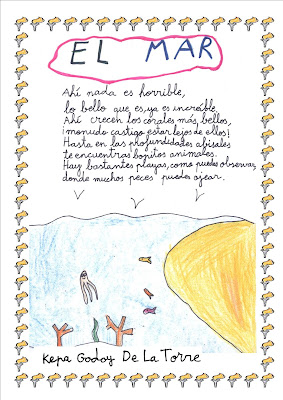 EL MAR
Ahí nada es horrible,
lo bello que es, ya es increíble.
Ahí crecen los corales más bellos,
¡menudo castigo estar lejos de ellos!
Hasta en las profundidades abisales
te encuentras bonitos animales.
Hay bastantes playas, como puedes observar,
donde muchos peces puedes ojear.
Kepa Godoy De La Torre